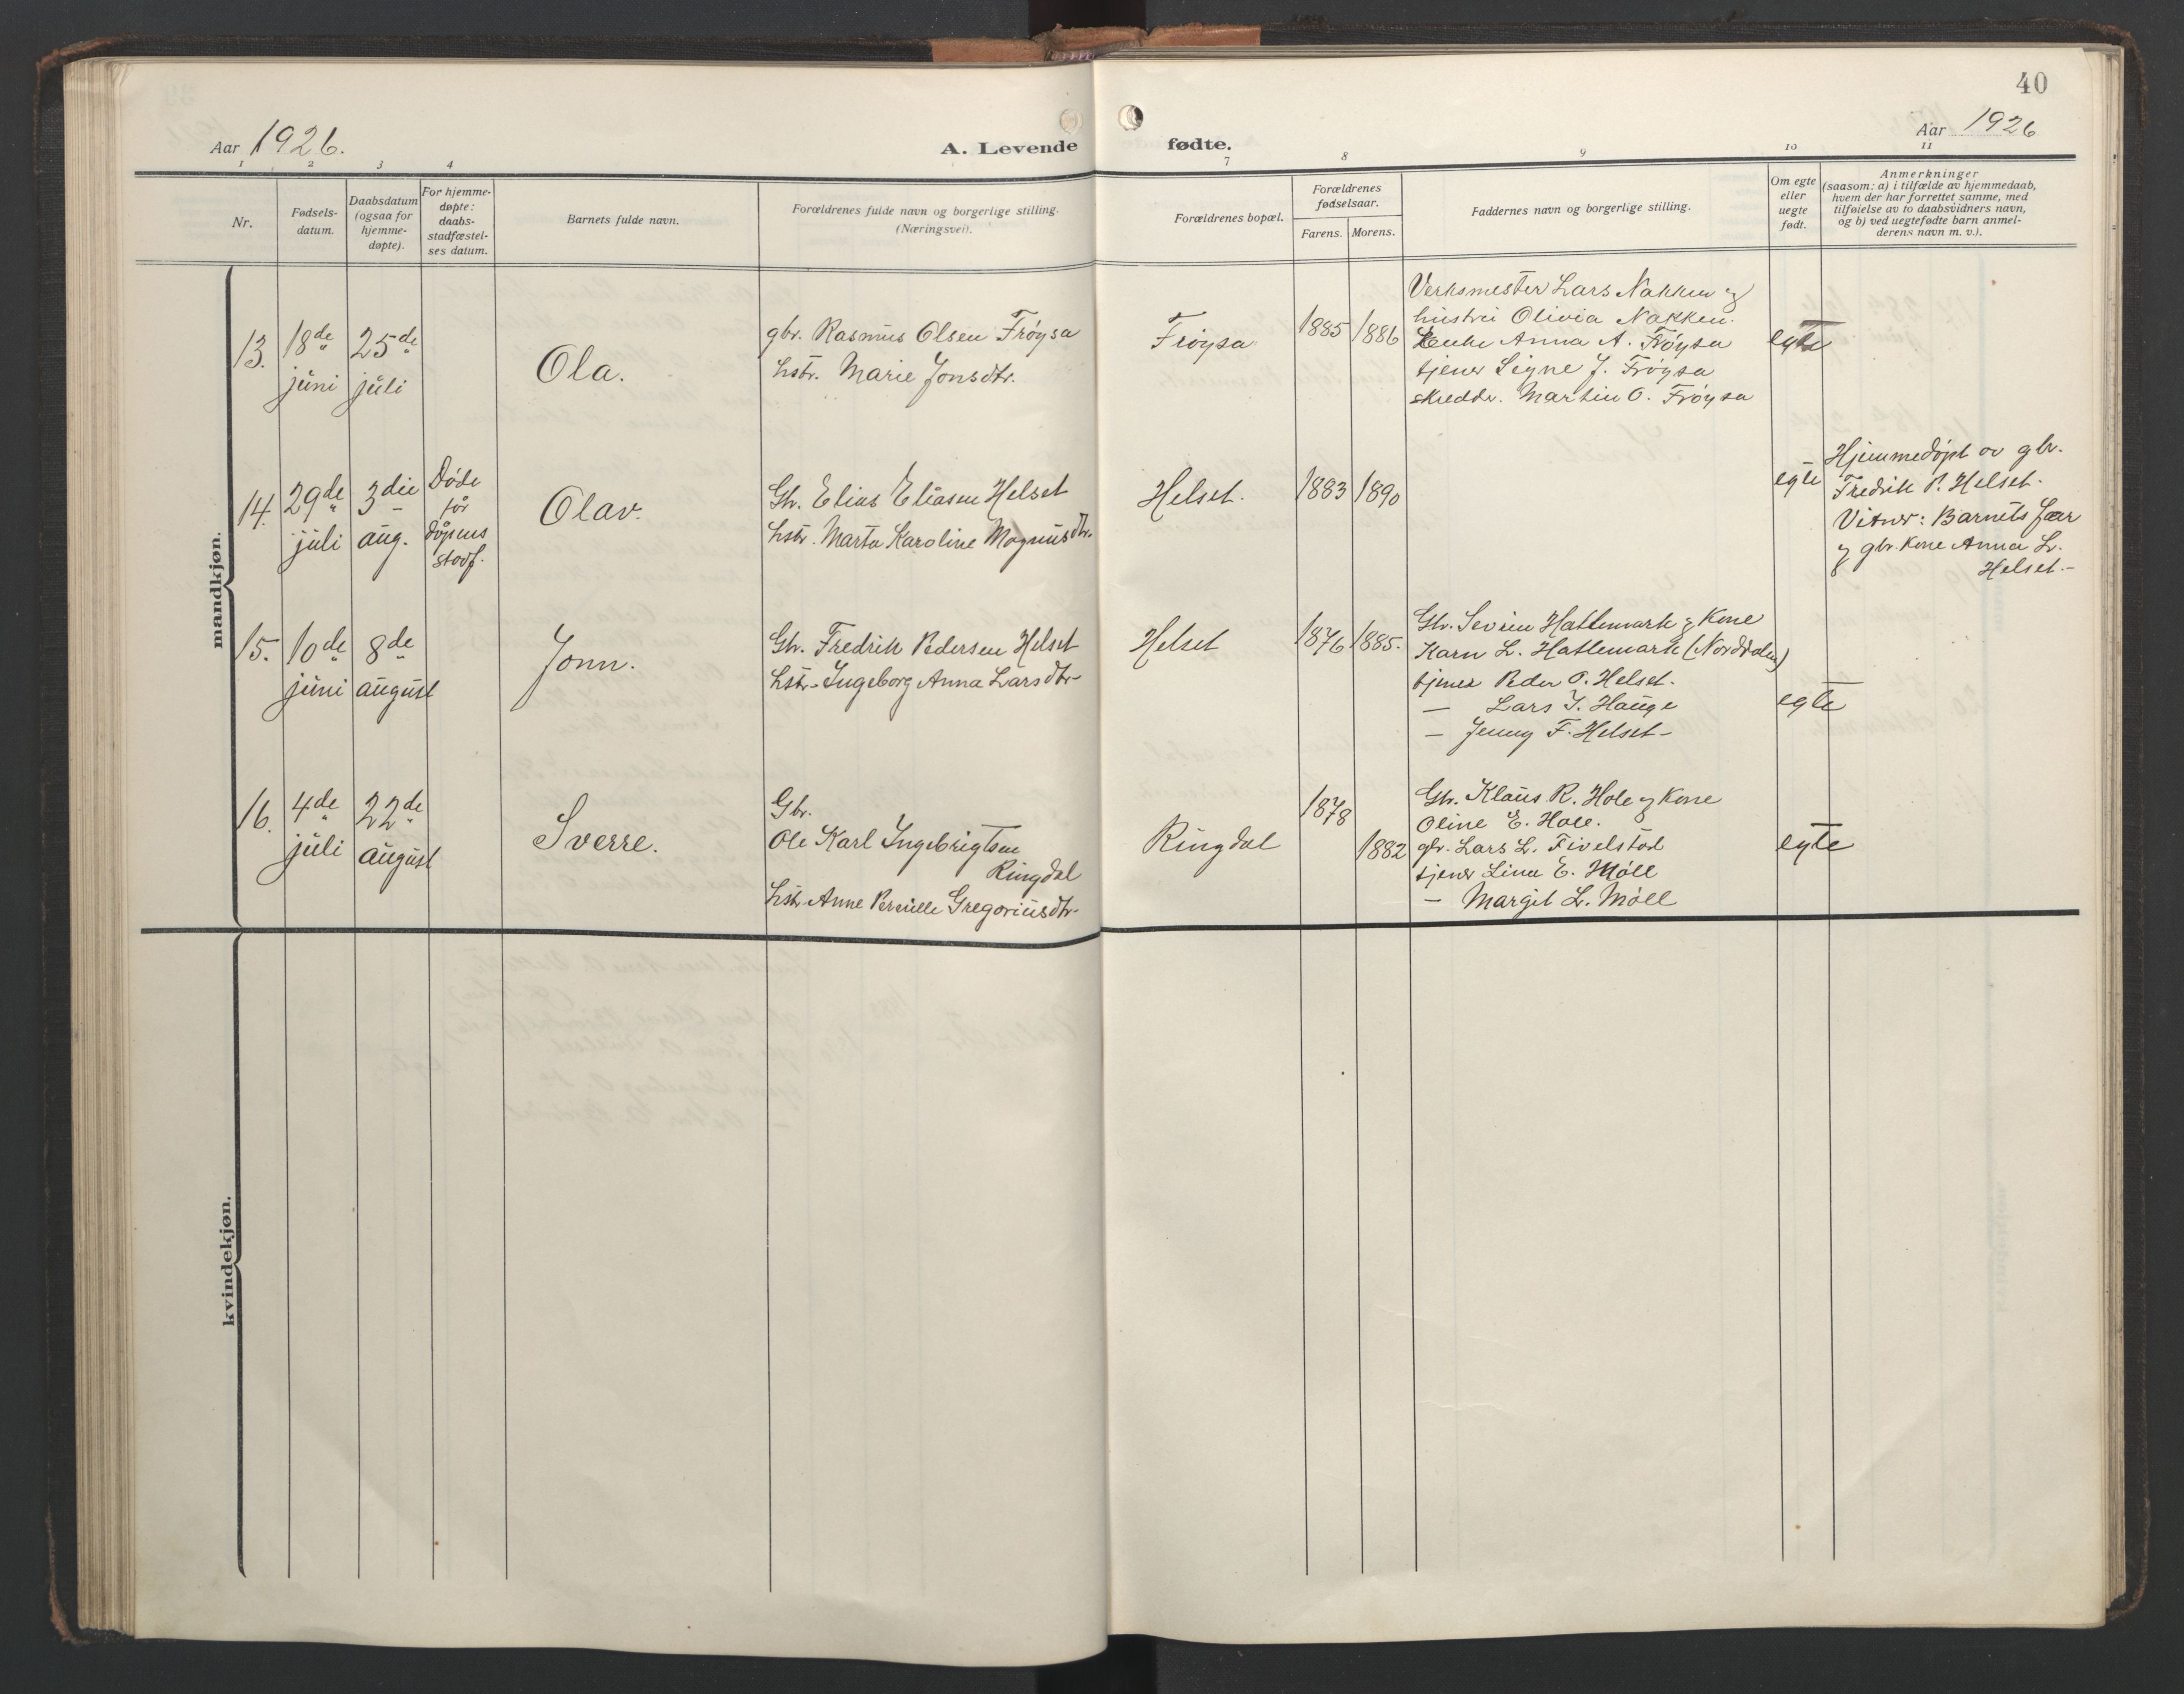 40
Aar 1926.
A. Levende fødte.
Aar 1926
1 2 3 4 7 8 9 10 11
Nr.
Fødsels-
datum.
Daabsdatum
(ogsaa for
hjemme-
døpte).
For hjemme-
døpte:
daabs-
stadfæstel-
ses datum.
Barnets fulde navn.
Forældrenes fulde navn og borgerlige stilling.
(Næringsvei).
Forældrenes bopæl.
Forældrenes
fødselsaar.
Farens. Morens.
Faddernes navn og borgerlige stilling.
Om egte
eller
uegte
født.
Anmerkninger
(saasom: a) i tilfælde av hjemmedaab,
hvem der har forrettet samme, med
tilføielse av to daabsvidners navn,
og b) ved uegtefødte barn anmel-
derens navn m. v.).
mandkjøn.
13.
18de
juni
25de
juli
Ola.
gbr. Rasmus Olsen Frøysa
hstr. Marie Jonsdtr.
Frøysa
1885
1886
Verksmester Lars Nakken og
hustru Olivia Nakken.
Enke Anna A. Frøysa
tjener Signe J. Frøysa
skreddr. Martin O. Frøysa
egte
14.
29de
juli
3die
aug.
Døde
før
dåpens
stadf.
Olav.
Gbr. Elias Eliasen Helset
hstr. Marta Karoline Magnusdtr.
Helset.
1883
1890
egte
Hjemmedøpt av gbr.
Fredrik P. Helset.
Vitner: Barnets far
og gbr. kone Anna L.
Helset.-
15.
10de
juni
8de
august
Jonn.
Gbr. Fredrik Pedersen Helset
hstr. Ingeborg Anna Larsdtr-
Helset
1876
1885.
Gbr. Sevrin Hatlemark og Kone
Karn L. Hatlemark (Norddalen)
tjener Peder P. Helset.
— Lars J. Hauge
— Jenny F. Helset-
egte
16.
4de
juli
22de
august
Sverre.
Gbr.
Ole Karl Ingebrigtsen
Ringdal
hstr Anne Pernille Gregoriusdtr-
Ringdal
1878
1882
Gbr. Klaus R. Hole og Kone
Oline E. Hole.
gbr. Lars L. Fivelstad
tjener Lina E. Møll
— Margit L. Møll
egte
kvindekjøn.